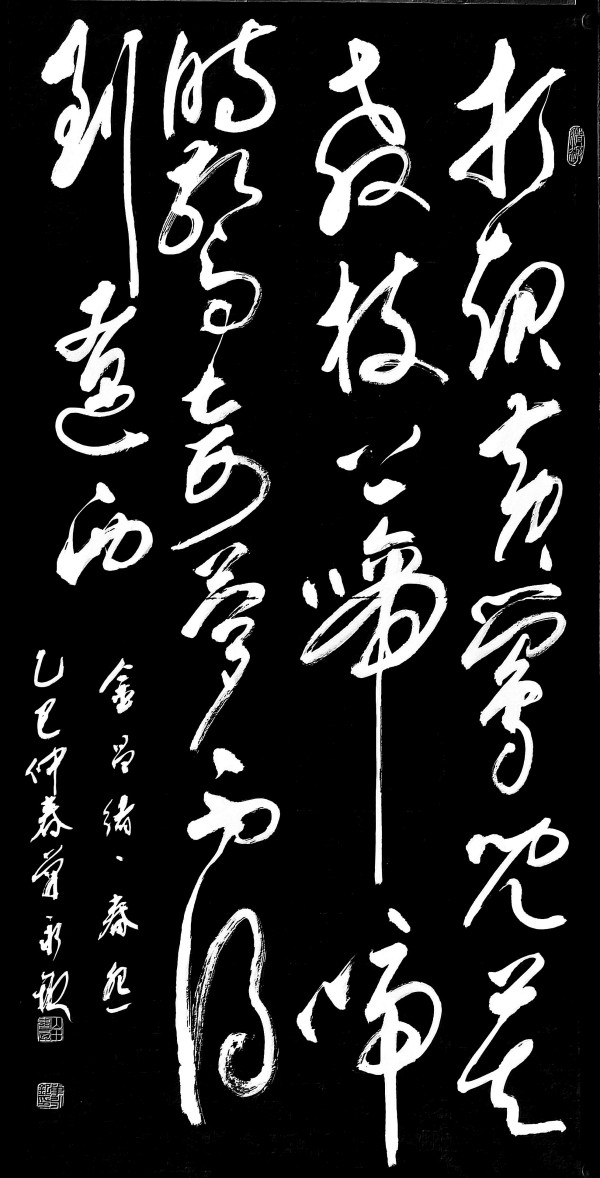 打起黄鶯兒莫
教枝上啼啼
時驚妾夢不得
到遼西
金昌緒、春怨
乙巳仲春